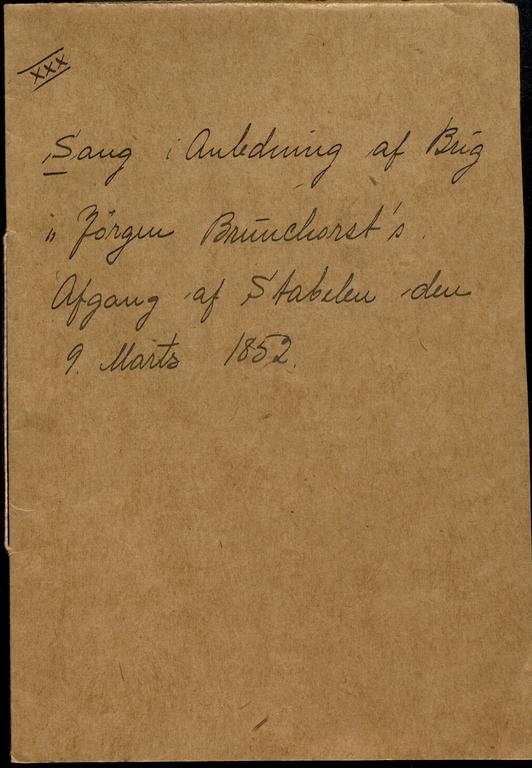 xxx
Sang i Anledning af Brig
„Jörgen Brunchorst's
Afgang af Stabelen den
9. Marts 1852.